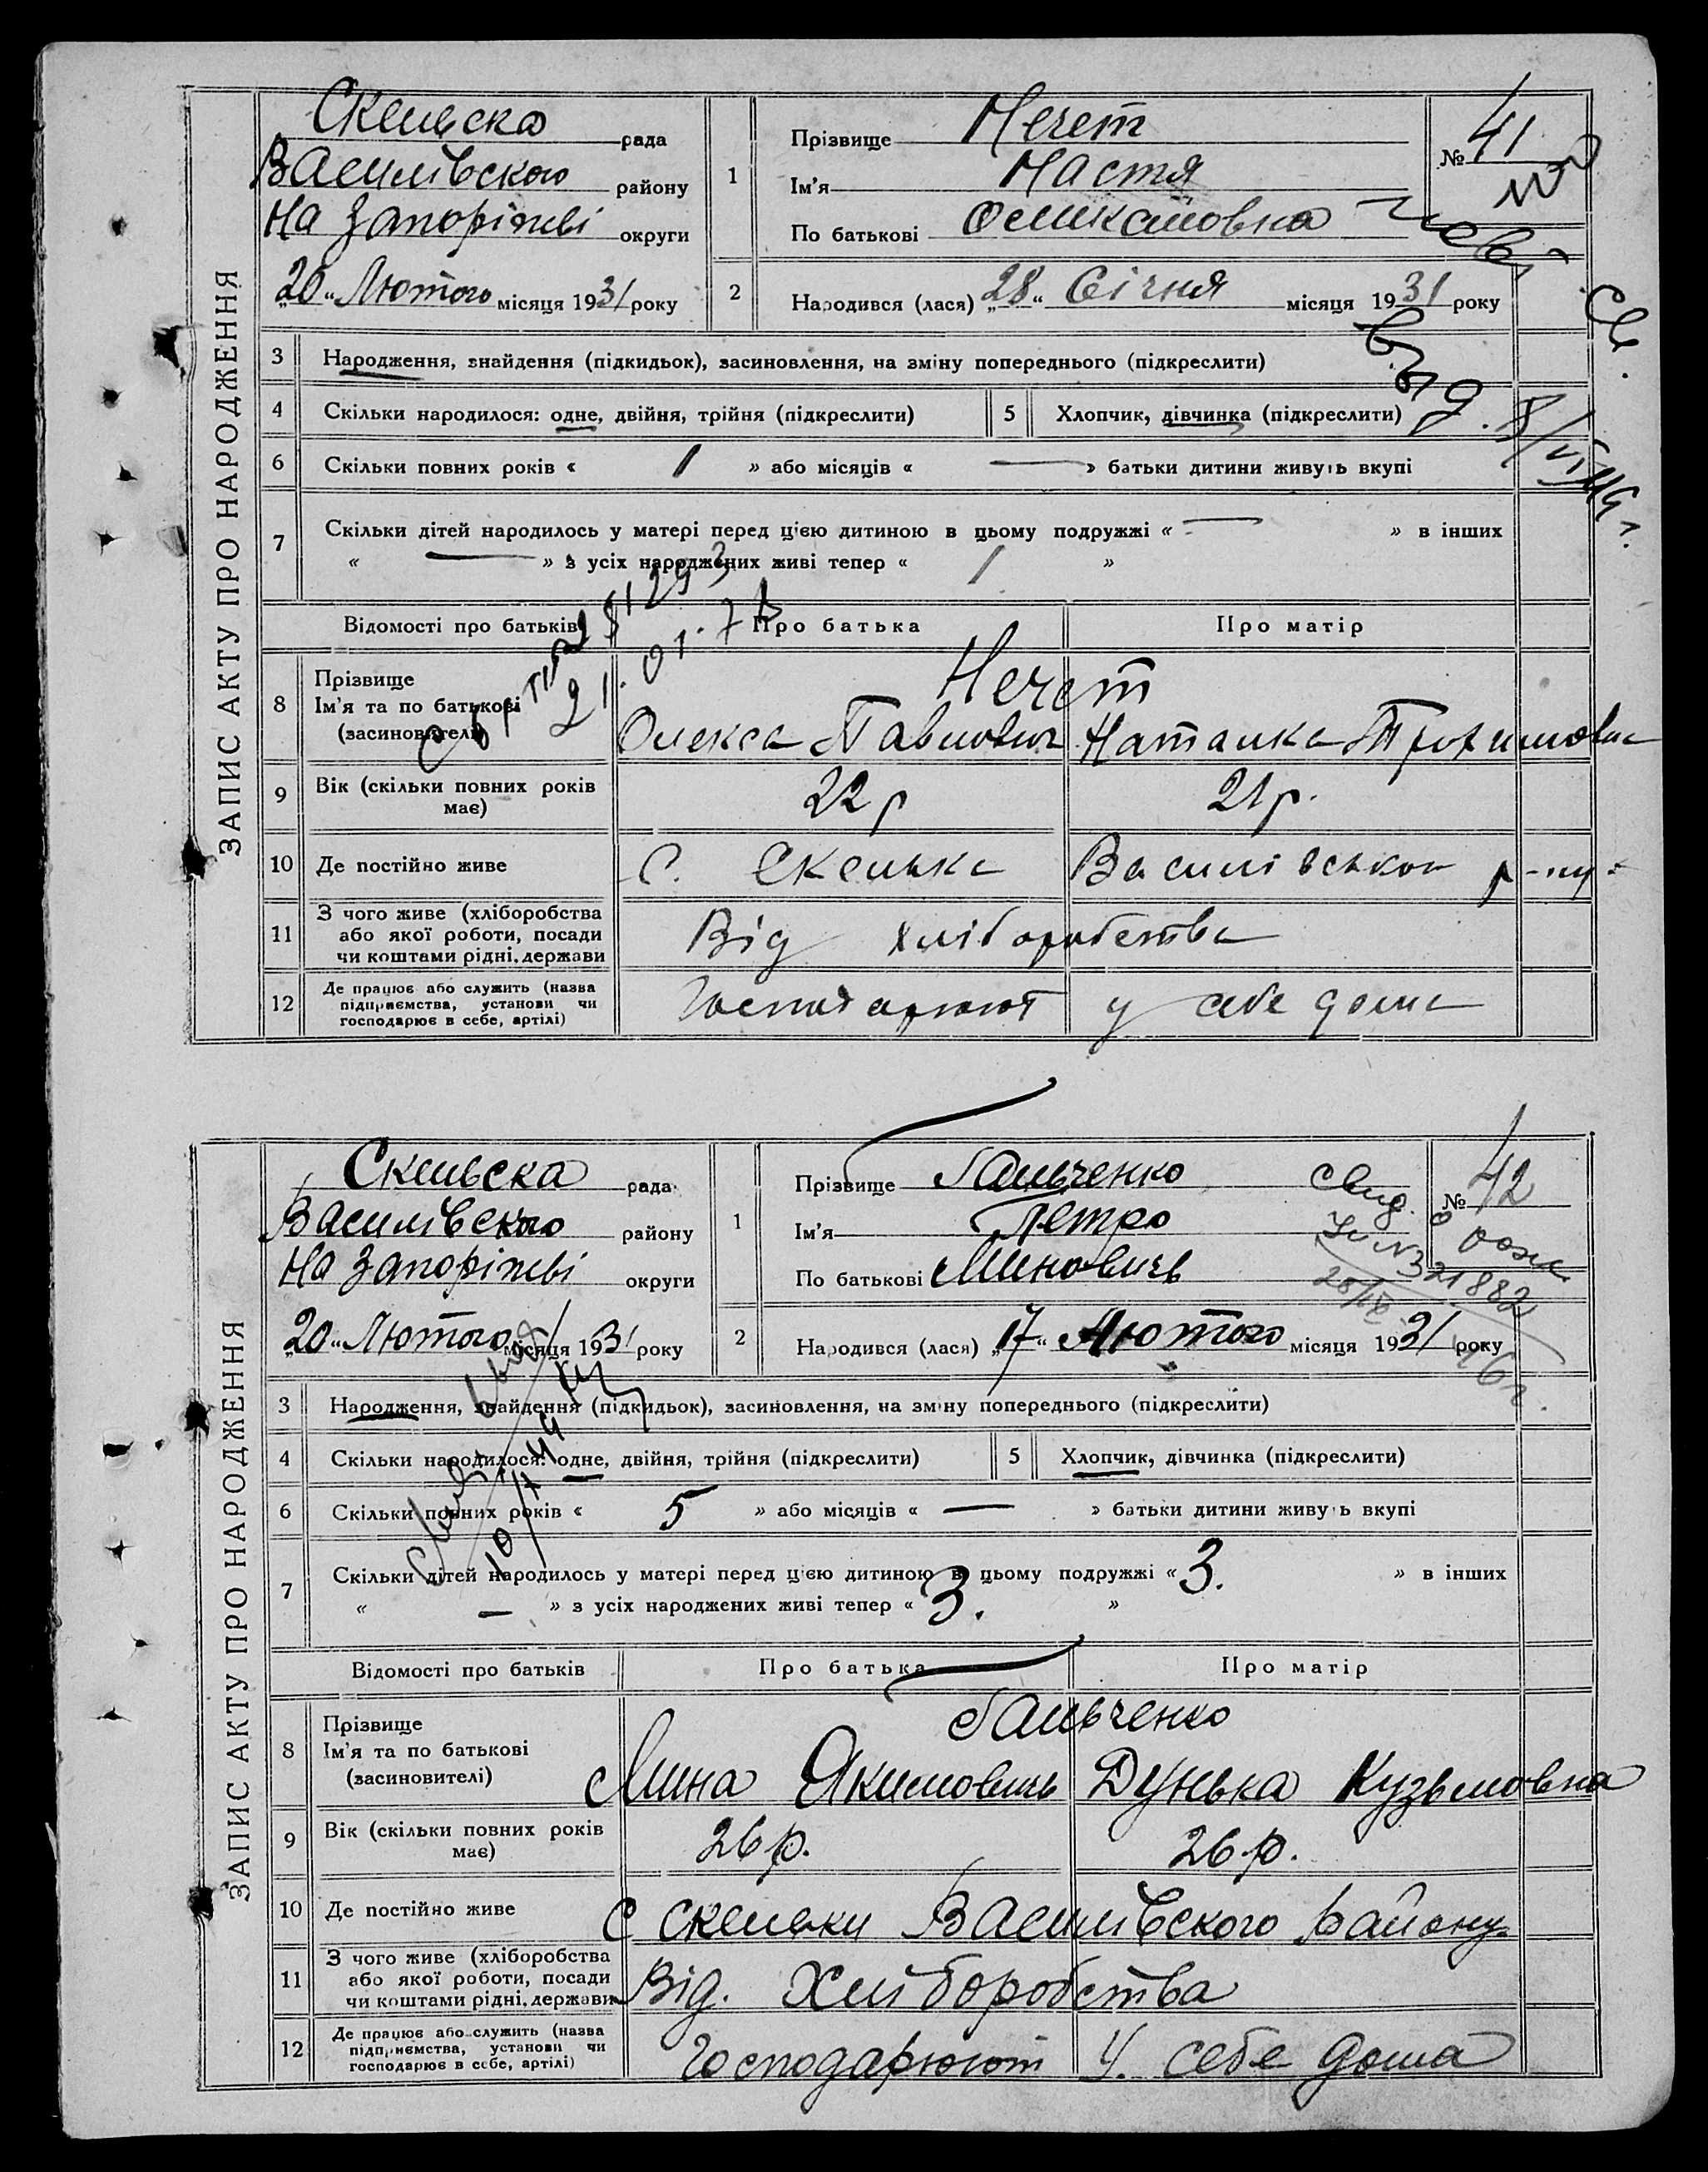 ЗАПИС АКТУ ПРО НАРОДЖЕННЯ
Скельска рада
Василівского району
На Запоріжві округи
„20“ Лютого місяця 1931 року
1 Прізвище Нечет
Ім'я Настя
По батькові
№ 41
2 Народився (лася) „28“ Січня місяця 1931 року
3 Народження, знайдення (підкидьок), засиновлення, на зміну попереднього (підкреслити)
4 Скільки народилося: одне, двійня, трійня (підкреслити) 5 Хлопчик, дівчинка (підкреслити)
6 Скільки повних років « 1 » або місяців « — » батьки дитини живуть вкупі
7 Скільки дітей народилось у матері перед цією дитиною в цьому подружжі « — » в інших
« — » з усіх народжених живі тепер « 1 »
21.01.77
Відомості про батьків Про батька Про матір
8 Прізвище
Ім'я та по батькові
(засиновителі)
Нечет
Олекса Павлович Наталка Трохимовна
9 Вік (скільки повних років має) 22 р 21 р.
10 Де постійно живе С. Скелька Василівськог р-ну
11 З чого живе (хліборобства
або якої роботи, посади
чи коштами рідні, держави
Від хліборобства
12 Де працює або служить (назва
підприємства, установи чи
господарює в себе, артілі)
Господарюют у себе дома
ЗАПИС АКТУ ПРО НАРОДЖЕННЯ
Скельска рада
Василівского району
На Запоріжві округи
„20“ Лютого місяця 1931 року
1 Прізвище Гальченко
Ім'я Петро
По батькові Миновичь
№ 42
Свид. о рож.
№ 321882
2 Народився (лася) „17“ Лютого місяця 1931 року
3 Народження, знайдення (підкидьок), засиновлення, на зміну попереднього (підкреслити)
4 Скільки народилося: одне, двійня, трійня (підкреслити) 5 Хлопчик, дівчинка (підкреслити)
6 Скільки повних років « 5 » або місяців « — » батьки дитини живуть вкупі
7 Скільки дітей народилось у матері перед цією дитиною в цьому подружжі « 3. » в інших
« — » з усіх народжених живі тепер « 3. »
Відомості про батьків Про батька Про матір
8 Прізвище
Ім'я та по батькові
(засиновителі)
Гальченко
Мина Якимовичь Дунька Кузьмовна
9 Вік (скільки повних років має) 26 р. 26 р.
10 Де постійно живе С Скельки Василівского району
11 З чого живе (хліборобства
або якої роботи, посади
чи коштами рідні, держави
Від. Хліборобства
12 Де працює або служить (назва
підприємства, установи чи
господарює в себе, артілі)
Господарюют У. себе дома